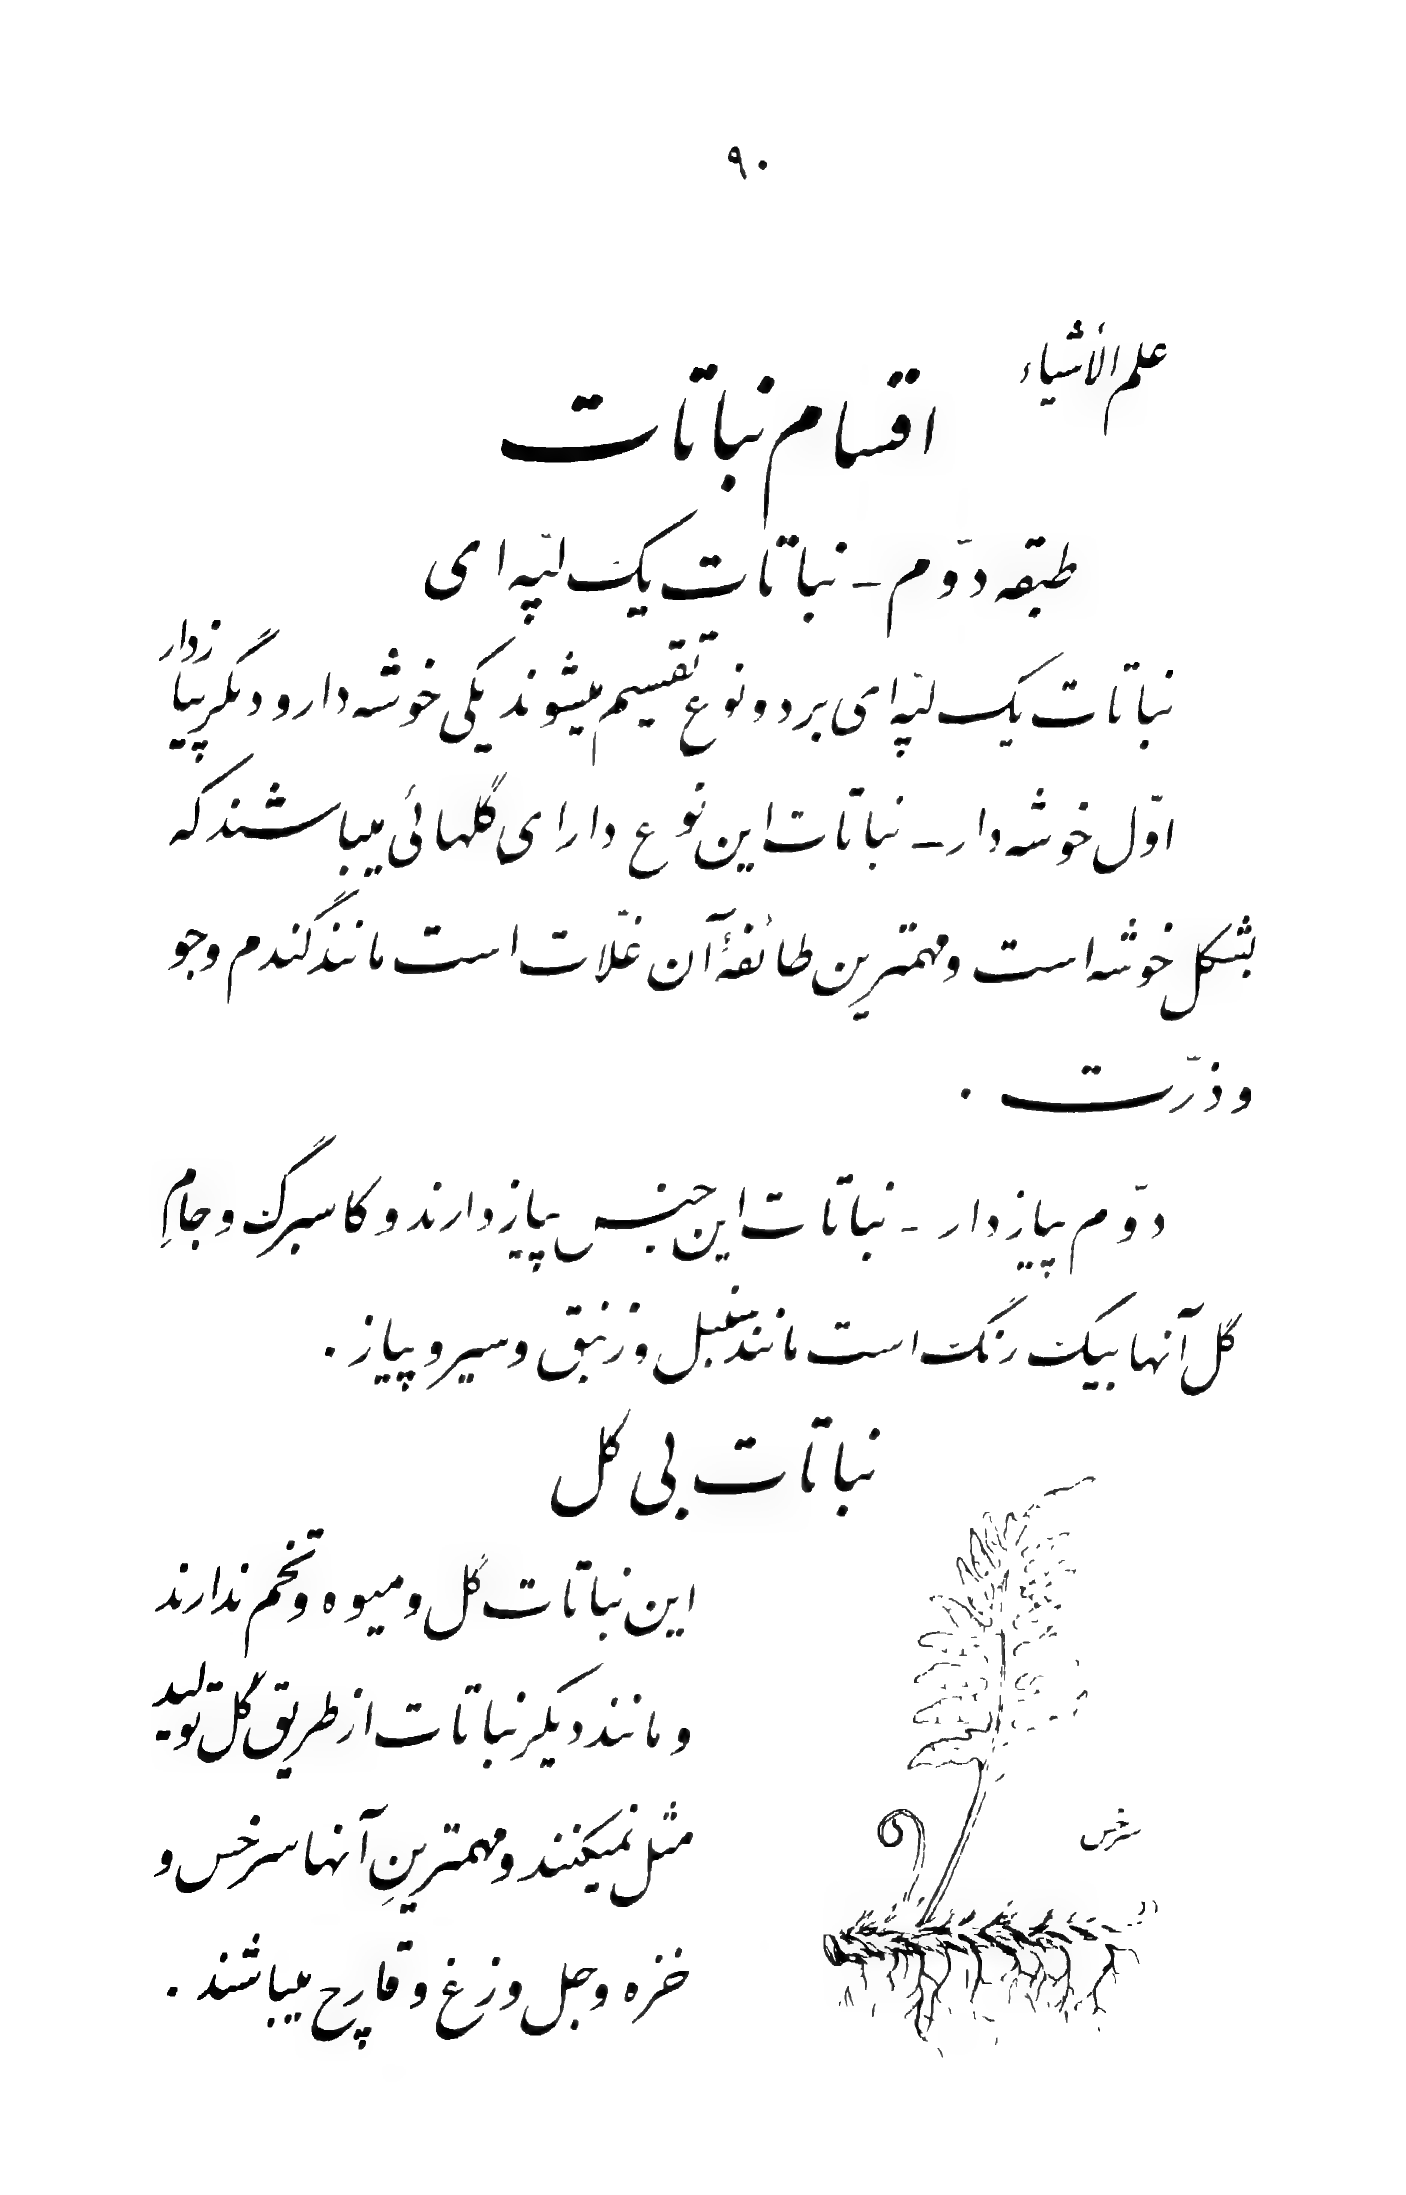 ۹۰
علم الأشیاء
اقسام نباتات
طبقه دوّم ـ نباتات یک لپّه ای
نباتات یک لپّه ای بر دو نوع تقسیم میشوند یکی خوشه دار و دیگر پیازدار
اوّل خوشه دار ـ نباتات این نوع دارای گلهائی میباشند که
بشکل خوشه است و مهمترین طائفهٔ آن غلّات است مانند گندم و جو
و ذرّت .
دوّم پیازدار ـ نباتات این جنس پیاز دارند و کاسبرگ و جامِ
گل آنها بیک رنگ است مانند سنبل و زنبق و سیر و پیاز .
نباتات بی گل
این نباتات گل و میوه و تخم ندارند
و مانند دیگر نباتات از طریق گل تولید
مثل نمیکنند و مهمترینِ آنها سرخس و
خزه و جل وزغ و قارچ میباشند .
سرخس